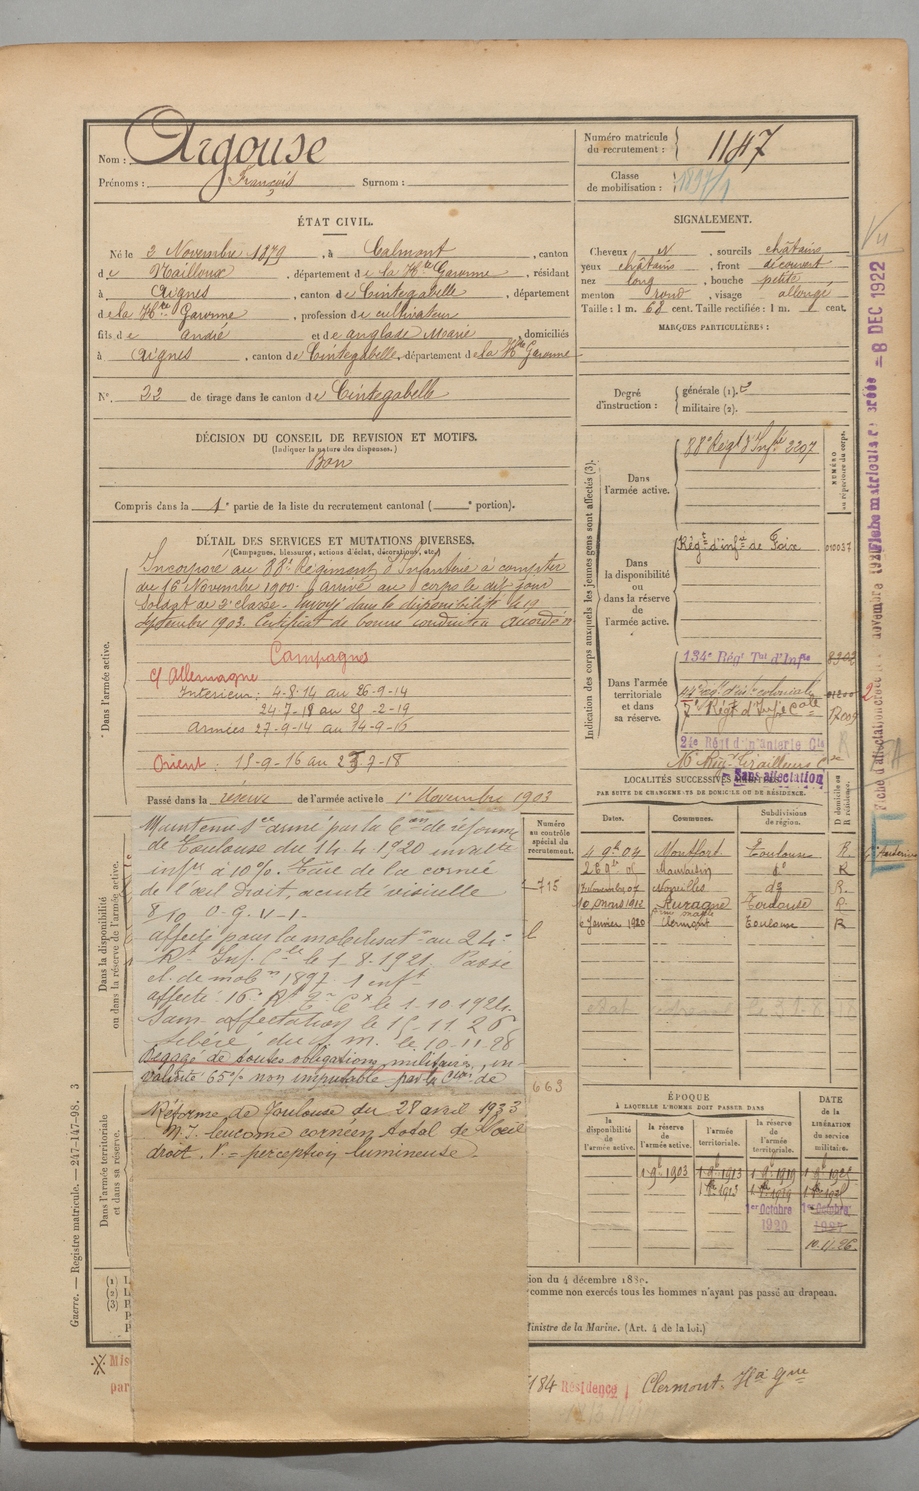 Nom : Argouse
Prénoms : François Surnom :
Numéro matricule du recrutement : 1147
Classe de mobilisation : 1897/1
ÉTAT CIVIL.
Né le 2 Novembre 1879, à Calmont, canton
de Nailloux, département de la Hte Garonne, résidant
à Aignes, canton de Cintegabelle, département
de la Hte Garonne, profession de cultivateur
fils de André et de Anglade Marie, domiciliés
à Aignes, canton de Cintegabelle, département de la Hte Garonne
N° 22 de tirage dans le canton de Cintegabelle
SIGNALEMENT.
Cheveux N, sourcils châtains
yeux châtains, front découvert
nez long, bouche petite
menton rond, visage allongé
Taille : 1 m. 68 cent. Taille rectifiée : 1 m. cent.
MARQUES PARTICULIÈRES :
Degré d'instruction : générale (1).
militaire (2).
DÉCISION DU CONSEIL DE REVISION ET MOTIFS.
(Indiquer la nature des dispenses.)
Bon
Compris dans la 1e partie de la liste du recrutement cantonal ( e portion).
DÉTAIL DES SERVICES ET MUTATIONS DIVERSES.
(Campagnes, blessures, actions d'éclat, décorations, etc.)
Dans l'armée active.
Incorporé au 88e Régiment d'Infanterie à compter
du 16 Novembre 1900. Arrivé au corps le dit jour
Soldat de 2e classe. Envoyé dans la disponibilité le 19
Septembre 1903. Certificat de bonne conduite accordé
Campagnes
c/ Allemagne
Interieur : 4-8-14 au 26-9-14
24.7-18 au 28-2-19
Armées 27-9-14 au 14-9-16
Orient : 15-9-16 au 23-7-18
Passé dans la réserve de l'armée active le 1er Novembre 1903
Dans la disponibilité ou dans la réserve de l'armée active.
Maintenu Sce armé par la Con de réforme
de Toulouse du 14-4-1920 invalté
infre à 10%. Taie de la cornée
de l'œil Droit, acuité visuelle
8/10
affecté pour la mobilisatn au 24e
Rt Inf. Cle le 1-8-1921. Passe
cl. de mobn 1897
affecté 16e
le 1-10-1924.
Sans affectation le 15-11-26
Libéré du S. M. le 10-11-28
Dégagé de toutes obligations militaires, in-
validité 65% non imputable par la Con de
Réforme de Toulouse du 28 avril 1933
leucome cornéen total de l'œil
droit. V. = perception lumineuse.
Dans l'armée territoriale et dans sa réserve.
Numéro au contrôle spécial du recrutement.
715
663
Indication des corps auxquels les jeunes gens sont affectés (3).
NUMÉRO au répertoire du corps.
Dans l'armée active. 88e Régt d'Infie 2207
Dans la disponibilité ou dans la réserve de l'armée active. Régt d'infie de Foix 010037
Dans l'armée territoriale et dans sa réserve.
134e Régt Tal d'Infie
7e Régt d'Infie Cole
24e Régt d'Infanterie Cle
16e Rég. Tirailleurs
Sans affectation
LOCALITÉS SUCCESSIVES HABITÉES
PAR SUITE DE CHANGEMENTS DE DOMICILE OU DE RÉSIDENCE.
D domicile ou R résidence.
Dates. Communes. Subdivisions de région.
4 9bre 04 Montfort Toulouse R.
Mauvaisin do R
Noueilles do R.
10 Mars 1912 Auragne Toulouse R.
6 Janvier 1920 Clermont Toulouse R
ÉPOQUE
À LAQUELLE L'HOMME DOIT PASSER DANS
la disponibilité de l'armée active. la réserve de l'armée active. l'armée territoriale. la réserve de l'armée territoriale.
DATE de la LIBÉRATION du service militaire.
1 9b 1903 1 9b 1913 1 9b 1919 1 9b 1925
1er Octobre 1920
10.11.26.
tion du 4 décembre 1830.
comme non exercés tous les hommes n'ayant pas passé au drapeau.
Ministre de la Marine. (Art. 4 de la loi.)
184 Résidence Clermont. Hte Gne
Mis
par
Guerre. — Registre matricule. — 247-147-98. 3
Vu
- 8 DEC 1922